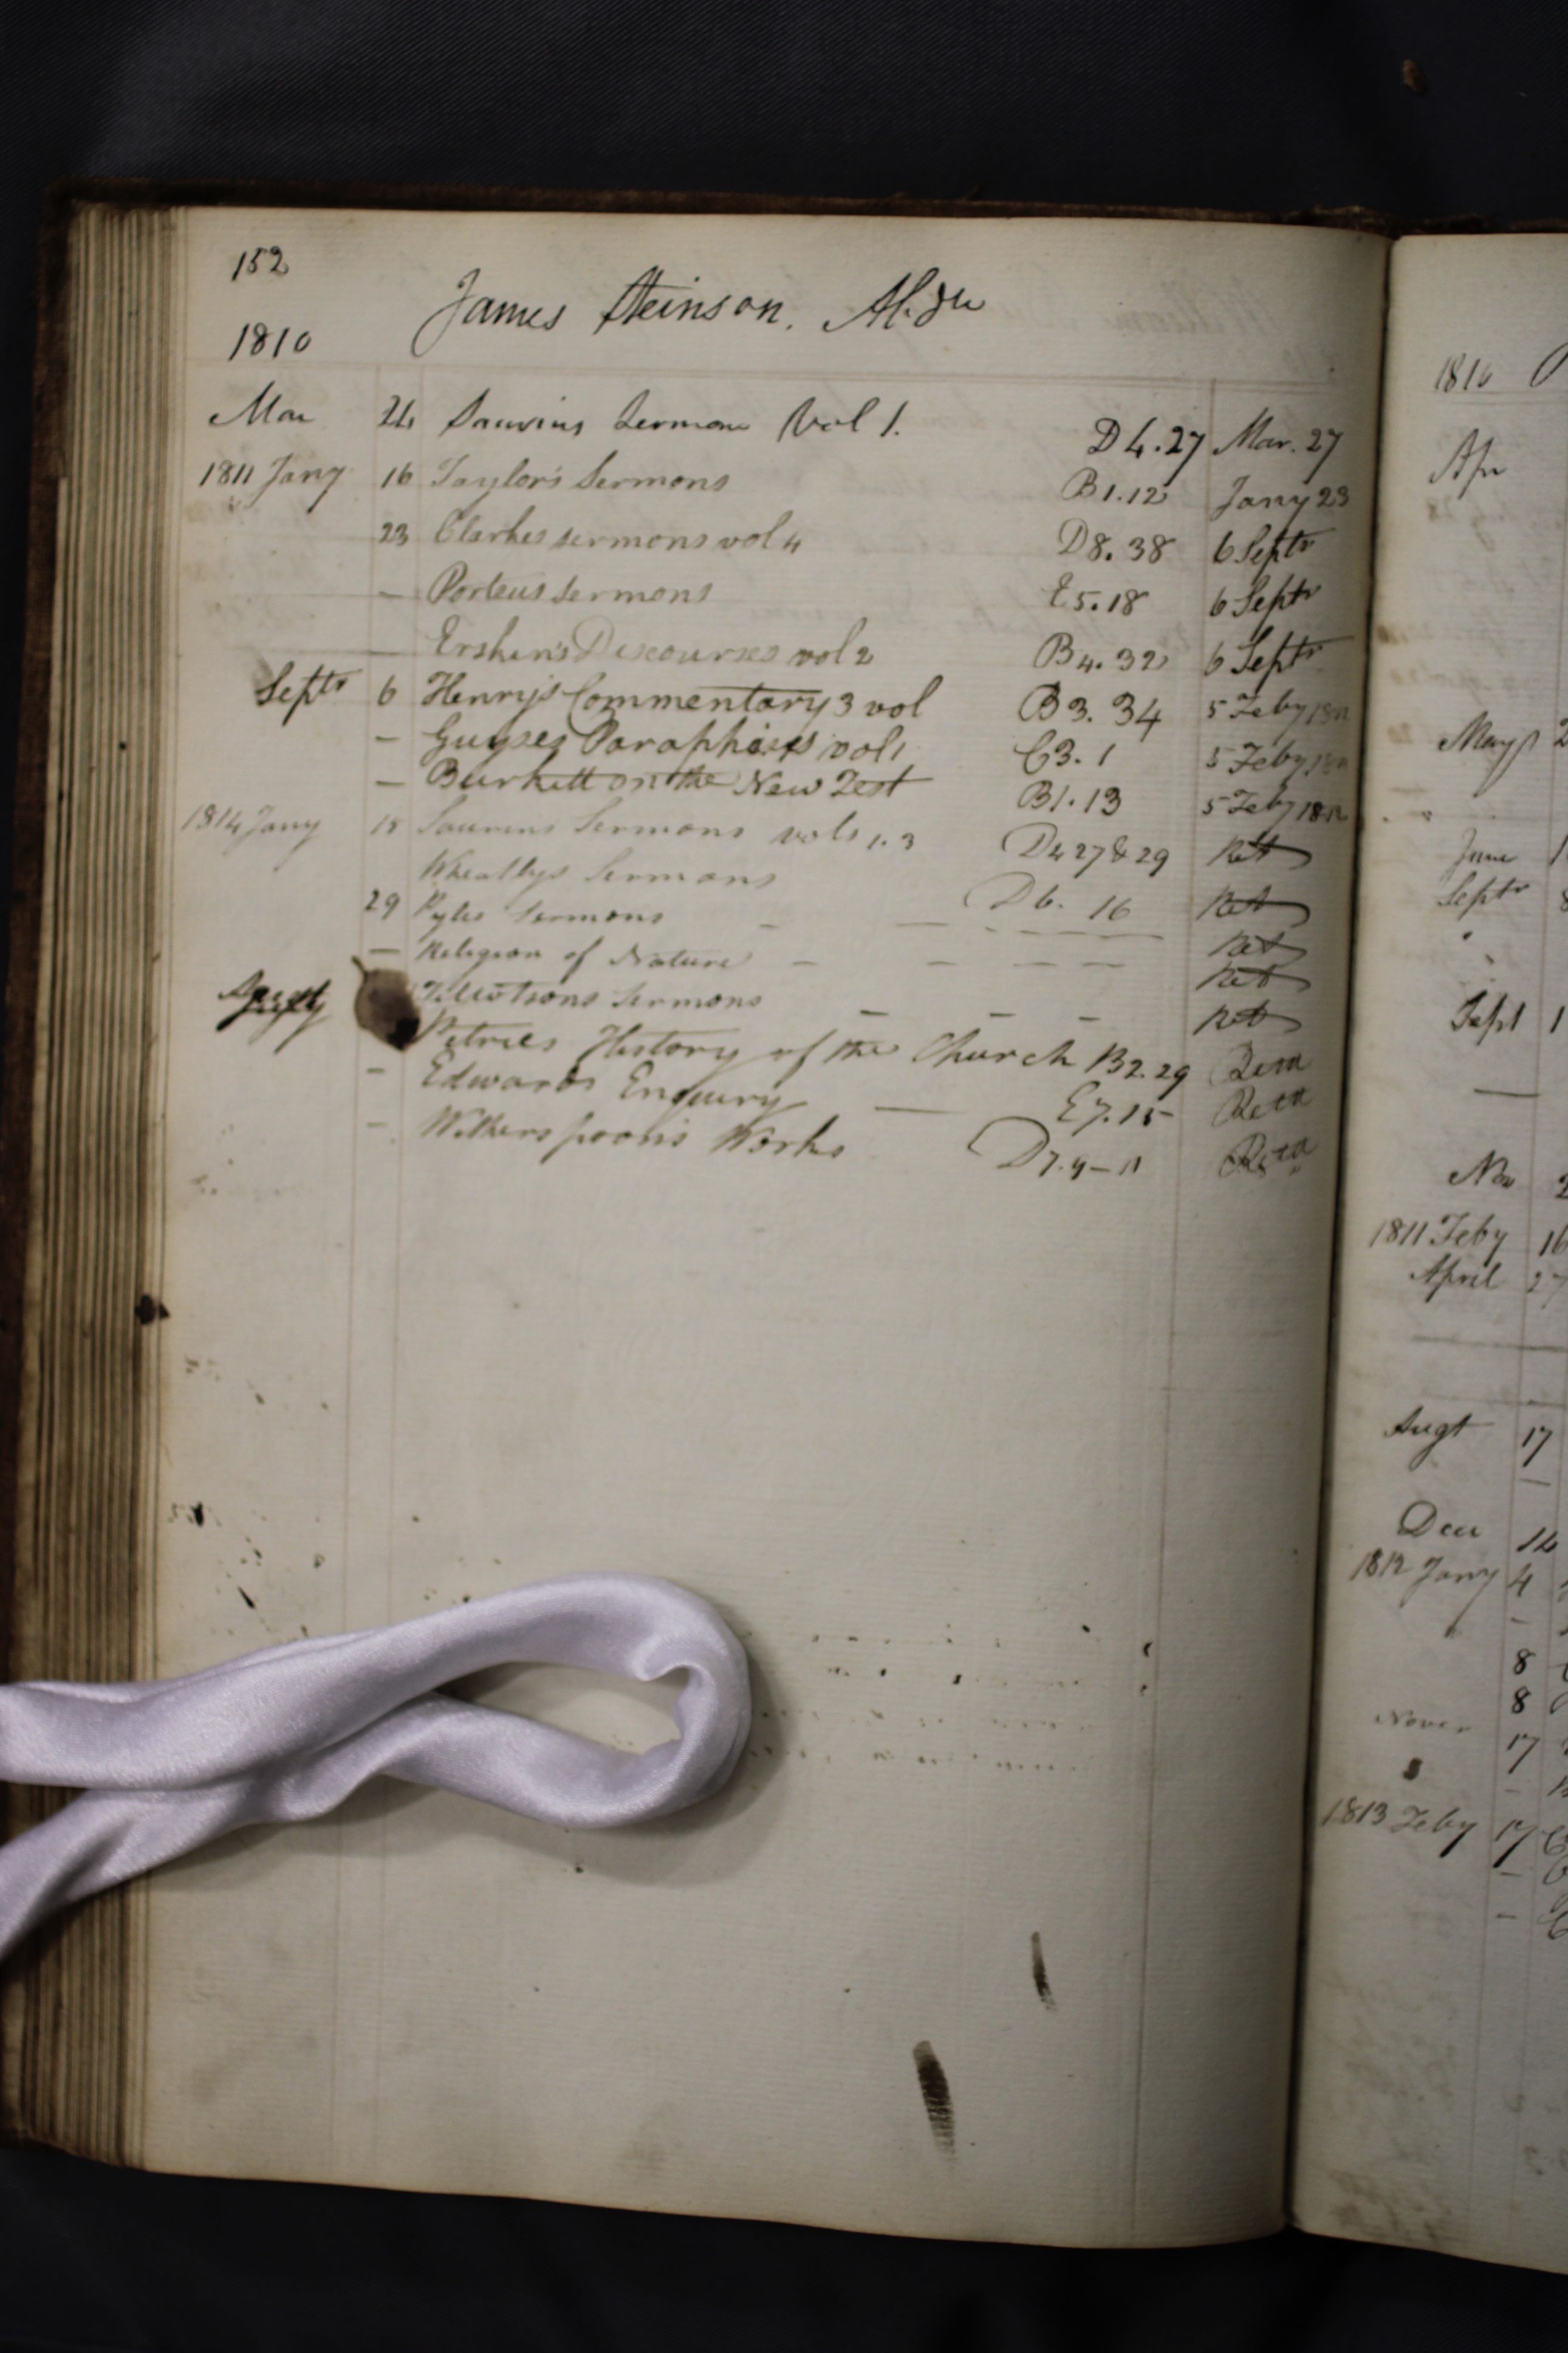 152
James Steinson.
1810
Mar 24 Saurins Sermons Vol 1. D4.27 Mar. 27
1811 Jany 16 Taylor's Sermons B1.12 Jany 23
23 Clarkes sermons vol 4 D8.38 6 Septr
— Porteus Sermons E5.18 6 Septr
— Erskin's Discourses vol 2 B4.32 6 Septr
Septr 6 Henry's Commentary 3 vol B3.34 5 Feby 1812
— Guyses Paraphrases vol 1 C3.1 5 Feby 1812
— Burkett on the New Test B1.13 5 Feby 1812
1814 Jany 18 Saurins Sermons vols 1.3 D4 27 & 29 Ret
Wheatlys Sermons D6. 16 Ret
29 Pyles Sermons — — — — — Ret
— Religion of Nature — — — — Ret
Tillotsons Sermons — — — Ret
Petries History of the Church B2.29
- Edwards Enquiry — E7.15
- Witherspoon's Works D7.9-11
1810
Apr
May
June
Septr
Sept 1
Nov
1811 Feby 16
April 27
Augt 17
—
Decr 14
1812 Jany 4
-
8
8
Novr
17
-
1813 Feby 17
-
-